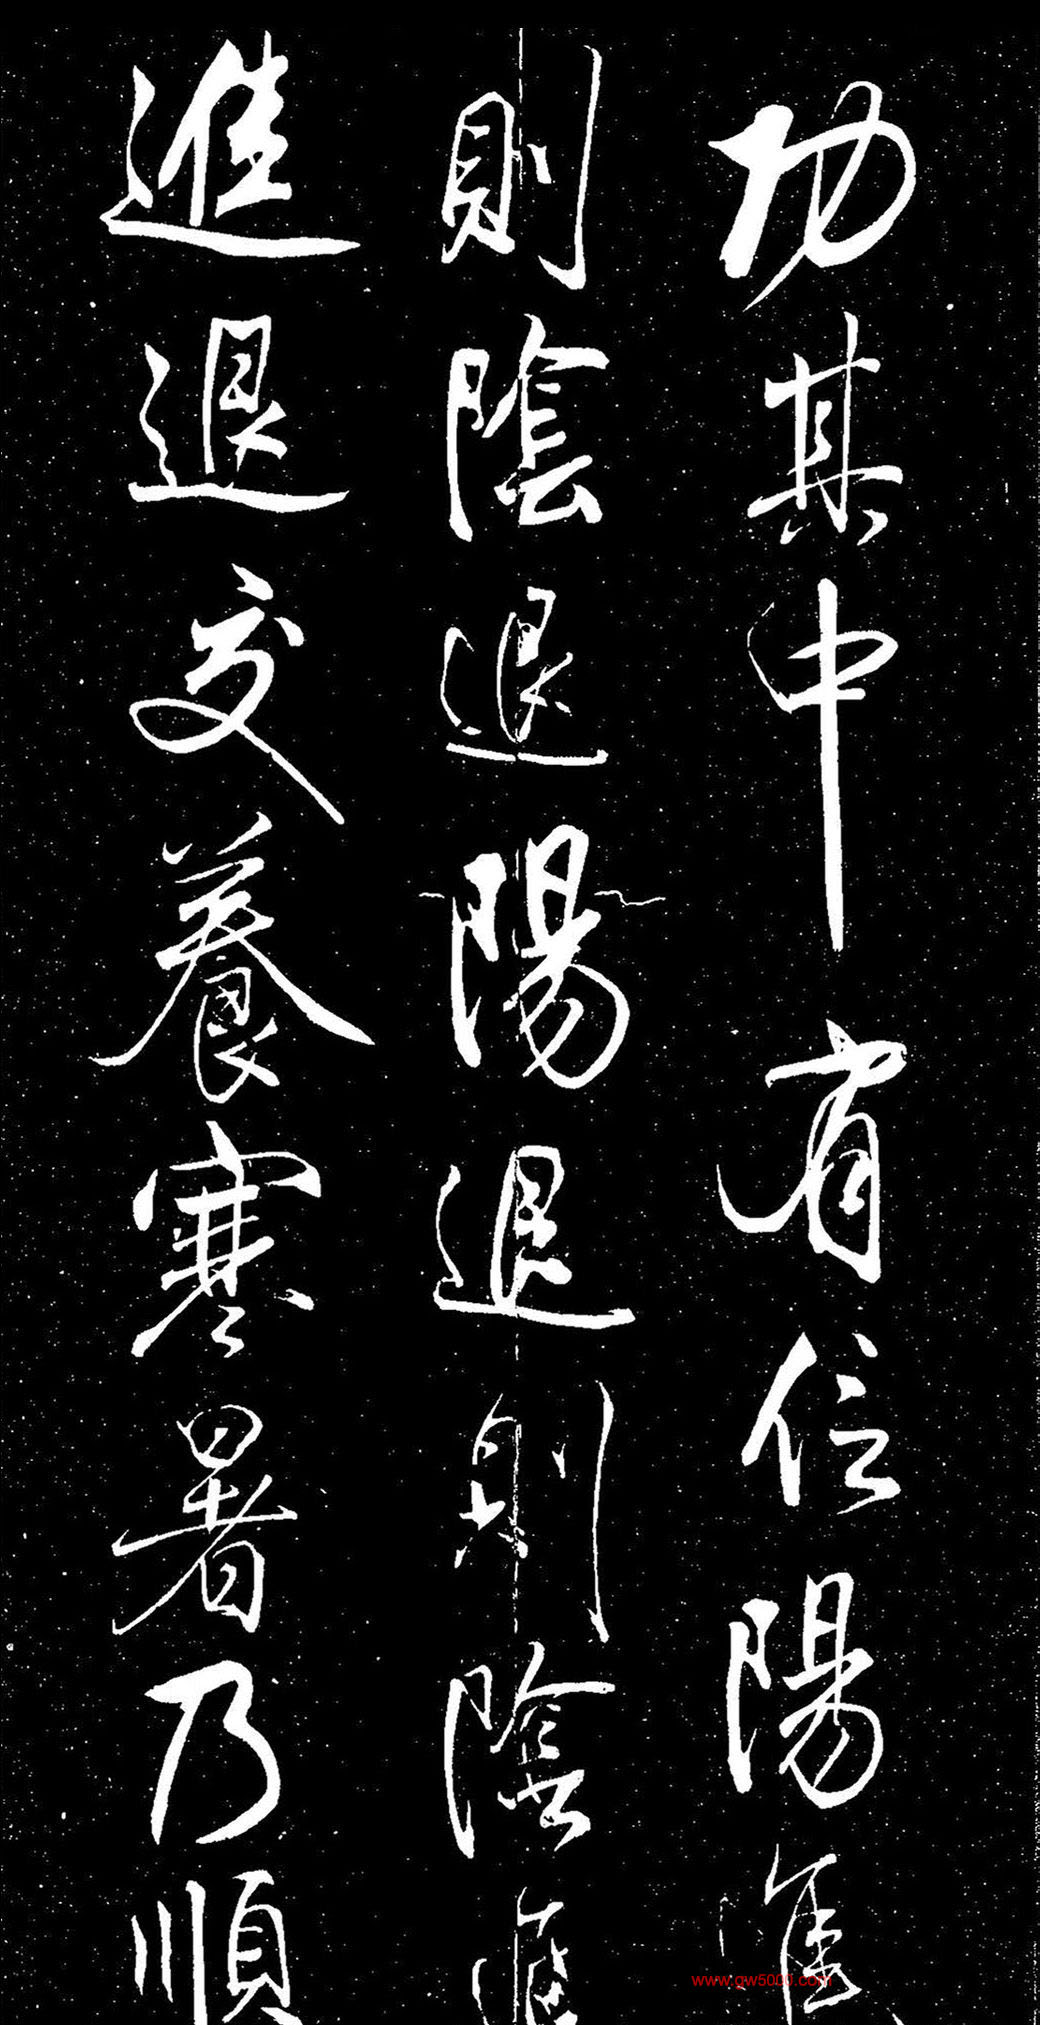 功其中有位陽進
則陰退陽退則陰進
進退交養寒暑乃順
www.gw5000.com